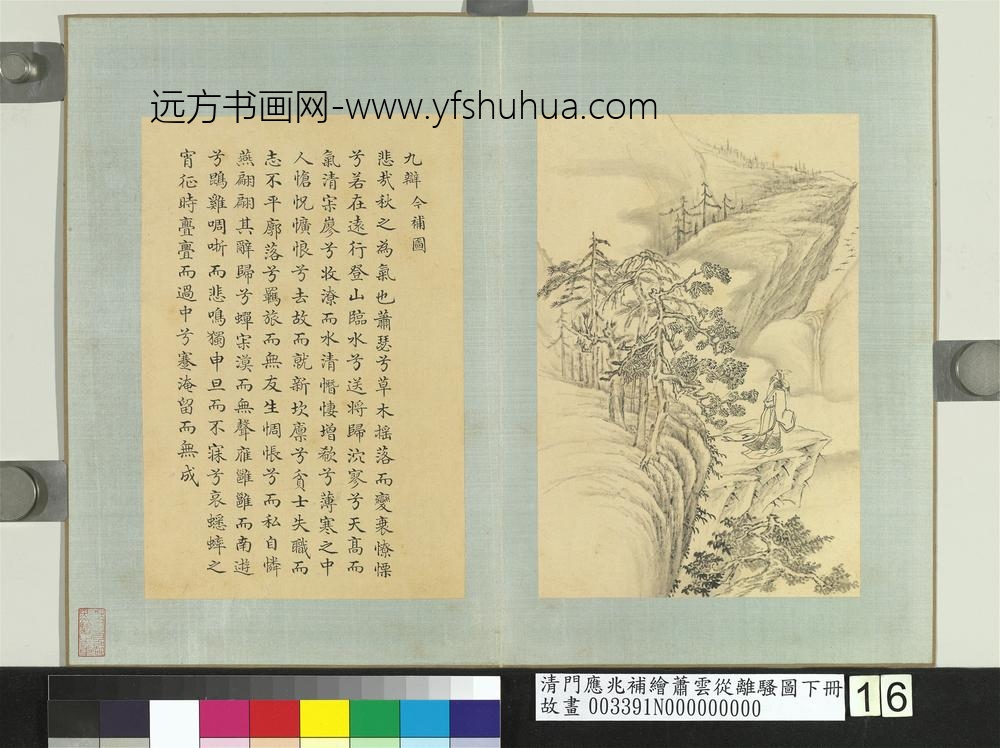 远方书画网-www.yfshuhua.com
九辯 今補圖
悲哉秋之為氣也蕭瑟兮草木搖落而變衰憭慄
兮若在遠行登山臨水兮送將歸泬寥兮天高而
氣清宋廖兮收潦而水清憯悽增欷兮薄寒之中
人愴怳懭悢兮去故而就新坎廩兮貧士失職而
志不平廓落兮羈旅而無友生惆悵兮而私自憐
燕翩翩其辭歸兮蟬宋漠而無聲雁雝雝而南遊
兮鵾雞啁哳而悲鳴獨申旦而不寐兮哀蟋蟀之
宵征時亹亹而過中兮蹇淹留而無成
清門應兆補繪蕭雲從離騷圖下冊
故畫 003391N000000000
16